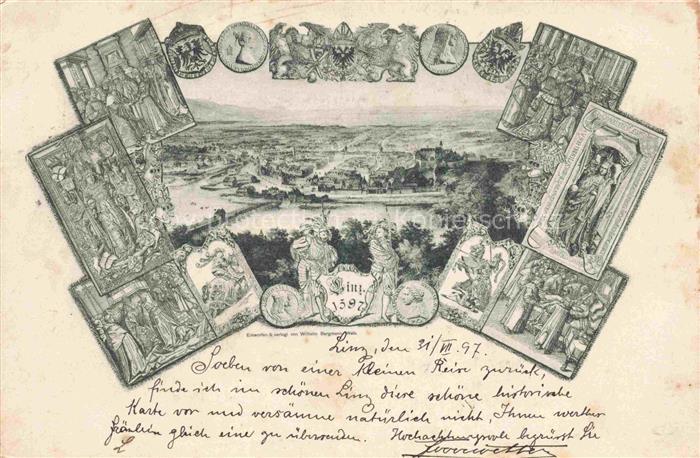 Linz.
1597
Entworfen & verlegt von Wilhelm Bergmann, Wels.
Linz, den 31/VII. 97.
Soeben von einer kleinen Reise zurück,
finde ich im schönen Linz diese schöne historische
Karte vor und versäume natürlich nicht, Ihnen werther
Fräulein gleich eine zu übersenden. Hochachtungsvoll begrüsst Sie